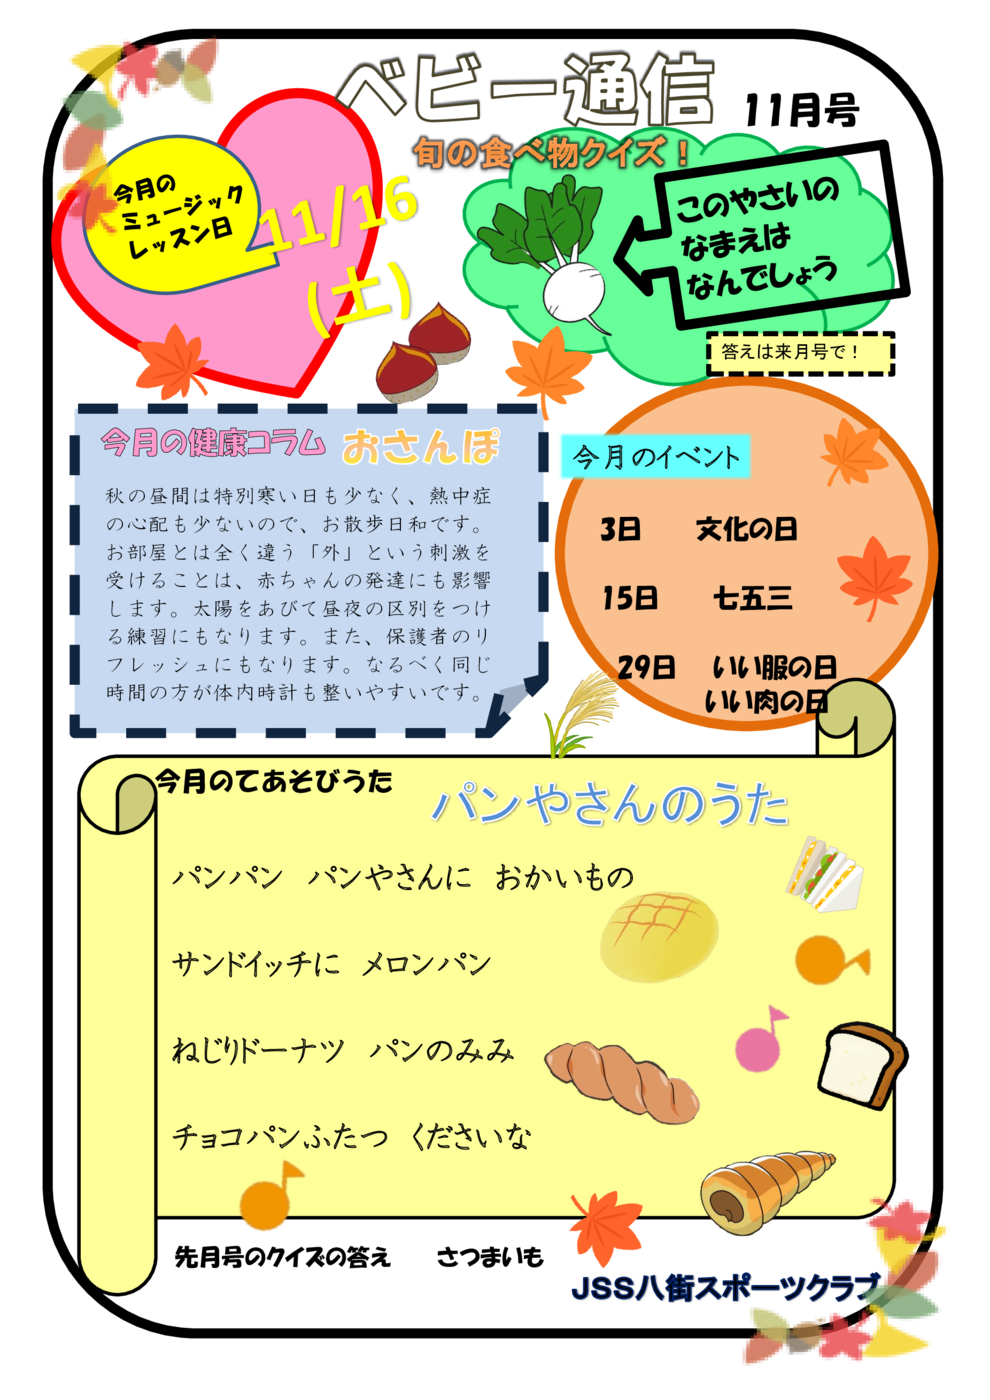 ベビー通信
11月号
旬の食べ物クイズ！
今月の
ミュージック
レッスン日
11/16
(土)
このやさいの
なまえは
なんでしょう
答えは来月号で！
今月の健康コラム おさんぽ
秋の昼間は特別寒い日も少なく、熱中症
の心配も少ないので、お散歩日和です。
お部屋とは全く違う「外」という刺激を
受けることは、赤ちゃんの発達にも影響
します。太陽をあびて昼夜の区別をつけ
る練習にもなります。また、保護者のリ
フレッシュにもなります。なるべく同じ
時間の方が体内時計も整いやすいです。
今月のイベント
3日 文化の日
15日 七五三
29日 いい服の日
いい肉の日
今月のてあそびうた
パンやさんのうた
パンパン パンやさんに おかいもの
サンドイッチに メロンパン
ねじりドーナツ パンのみみ
チョコパンふたつ くださいな
先月号のクイズの答え さつまいも
JSS八街スポーツクラブ